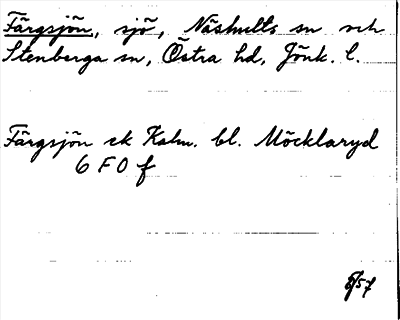 Färgsjön, sjö, Näshults sn och
Stenberga sn, Östra hd, Jönk. l.
Färgsjön ek Kalm. bl. Möcklaryd
6 F 0 f
/57